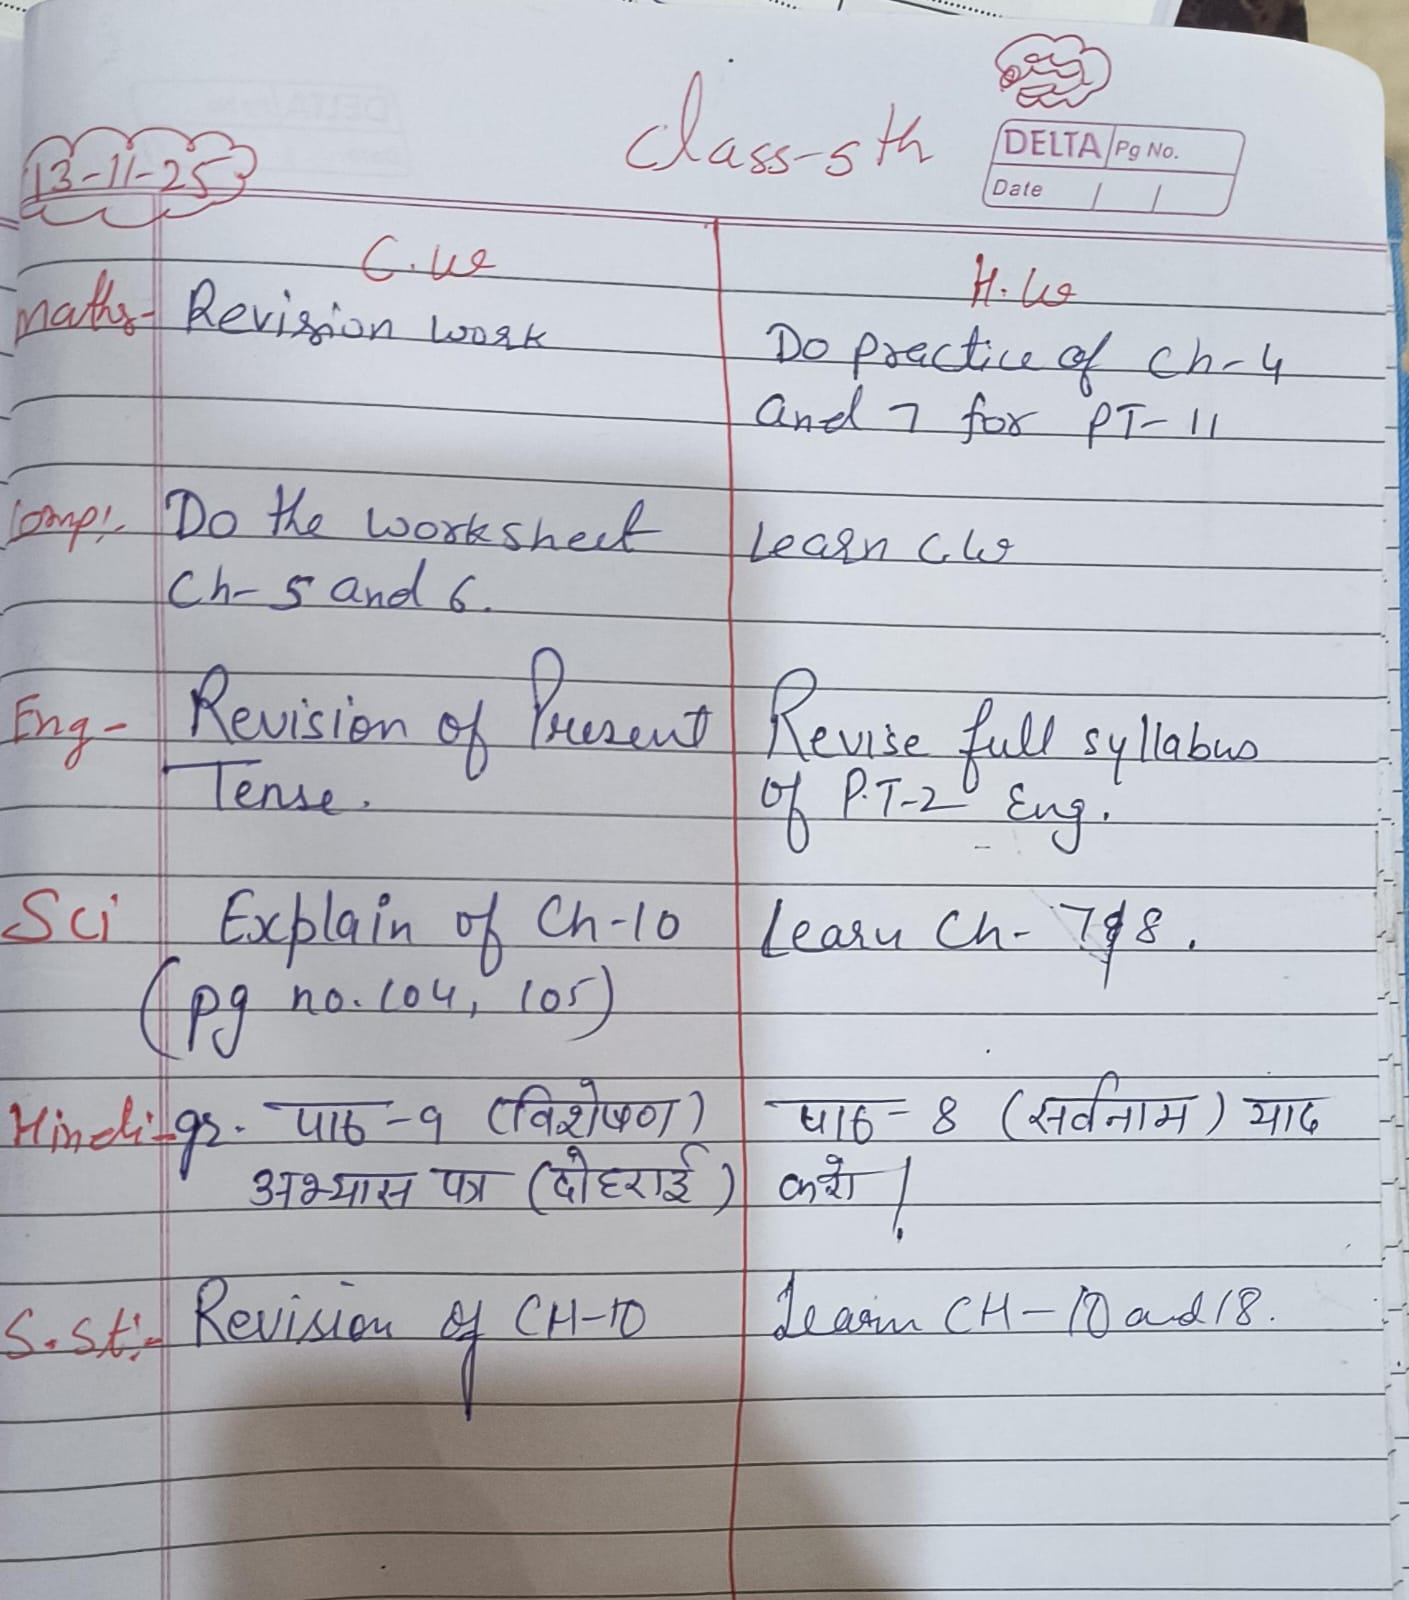 class-5th
DELTA Pg No.
Date
13-11-25
C.w
H.w
Maths- Revision work
Do practice of Ch-4
and 7 for PT-11
Comp:- Do the worksheet
Ch-5 and 6.
Learn C.W
Eng- Revision of Present
Tense.
Revise full syllabus
of P.T-2 Eng.
Sci Explain of Ch-10
(pg no. 104, 105)
Learn Ch- 7&8.
Hindi-gr. पाठ-9 (विशेषण)
अभ्यास पत्र (दोहराई)
पाठ- 8 (सर्वनाम) याद
करो!
S.st:- Revision of CH-10
Learn CH-10 and 18.